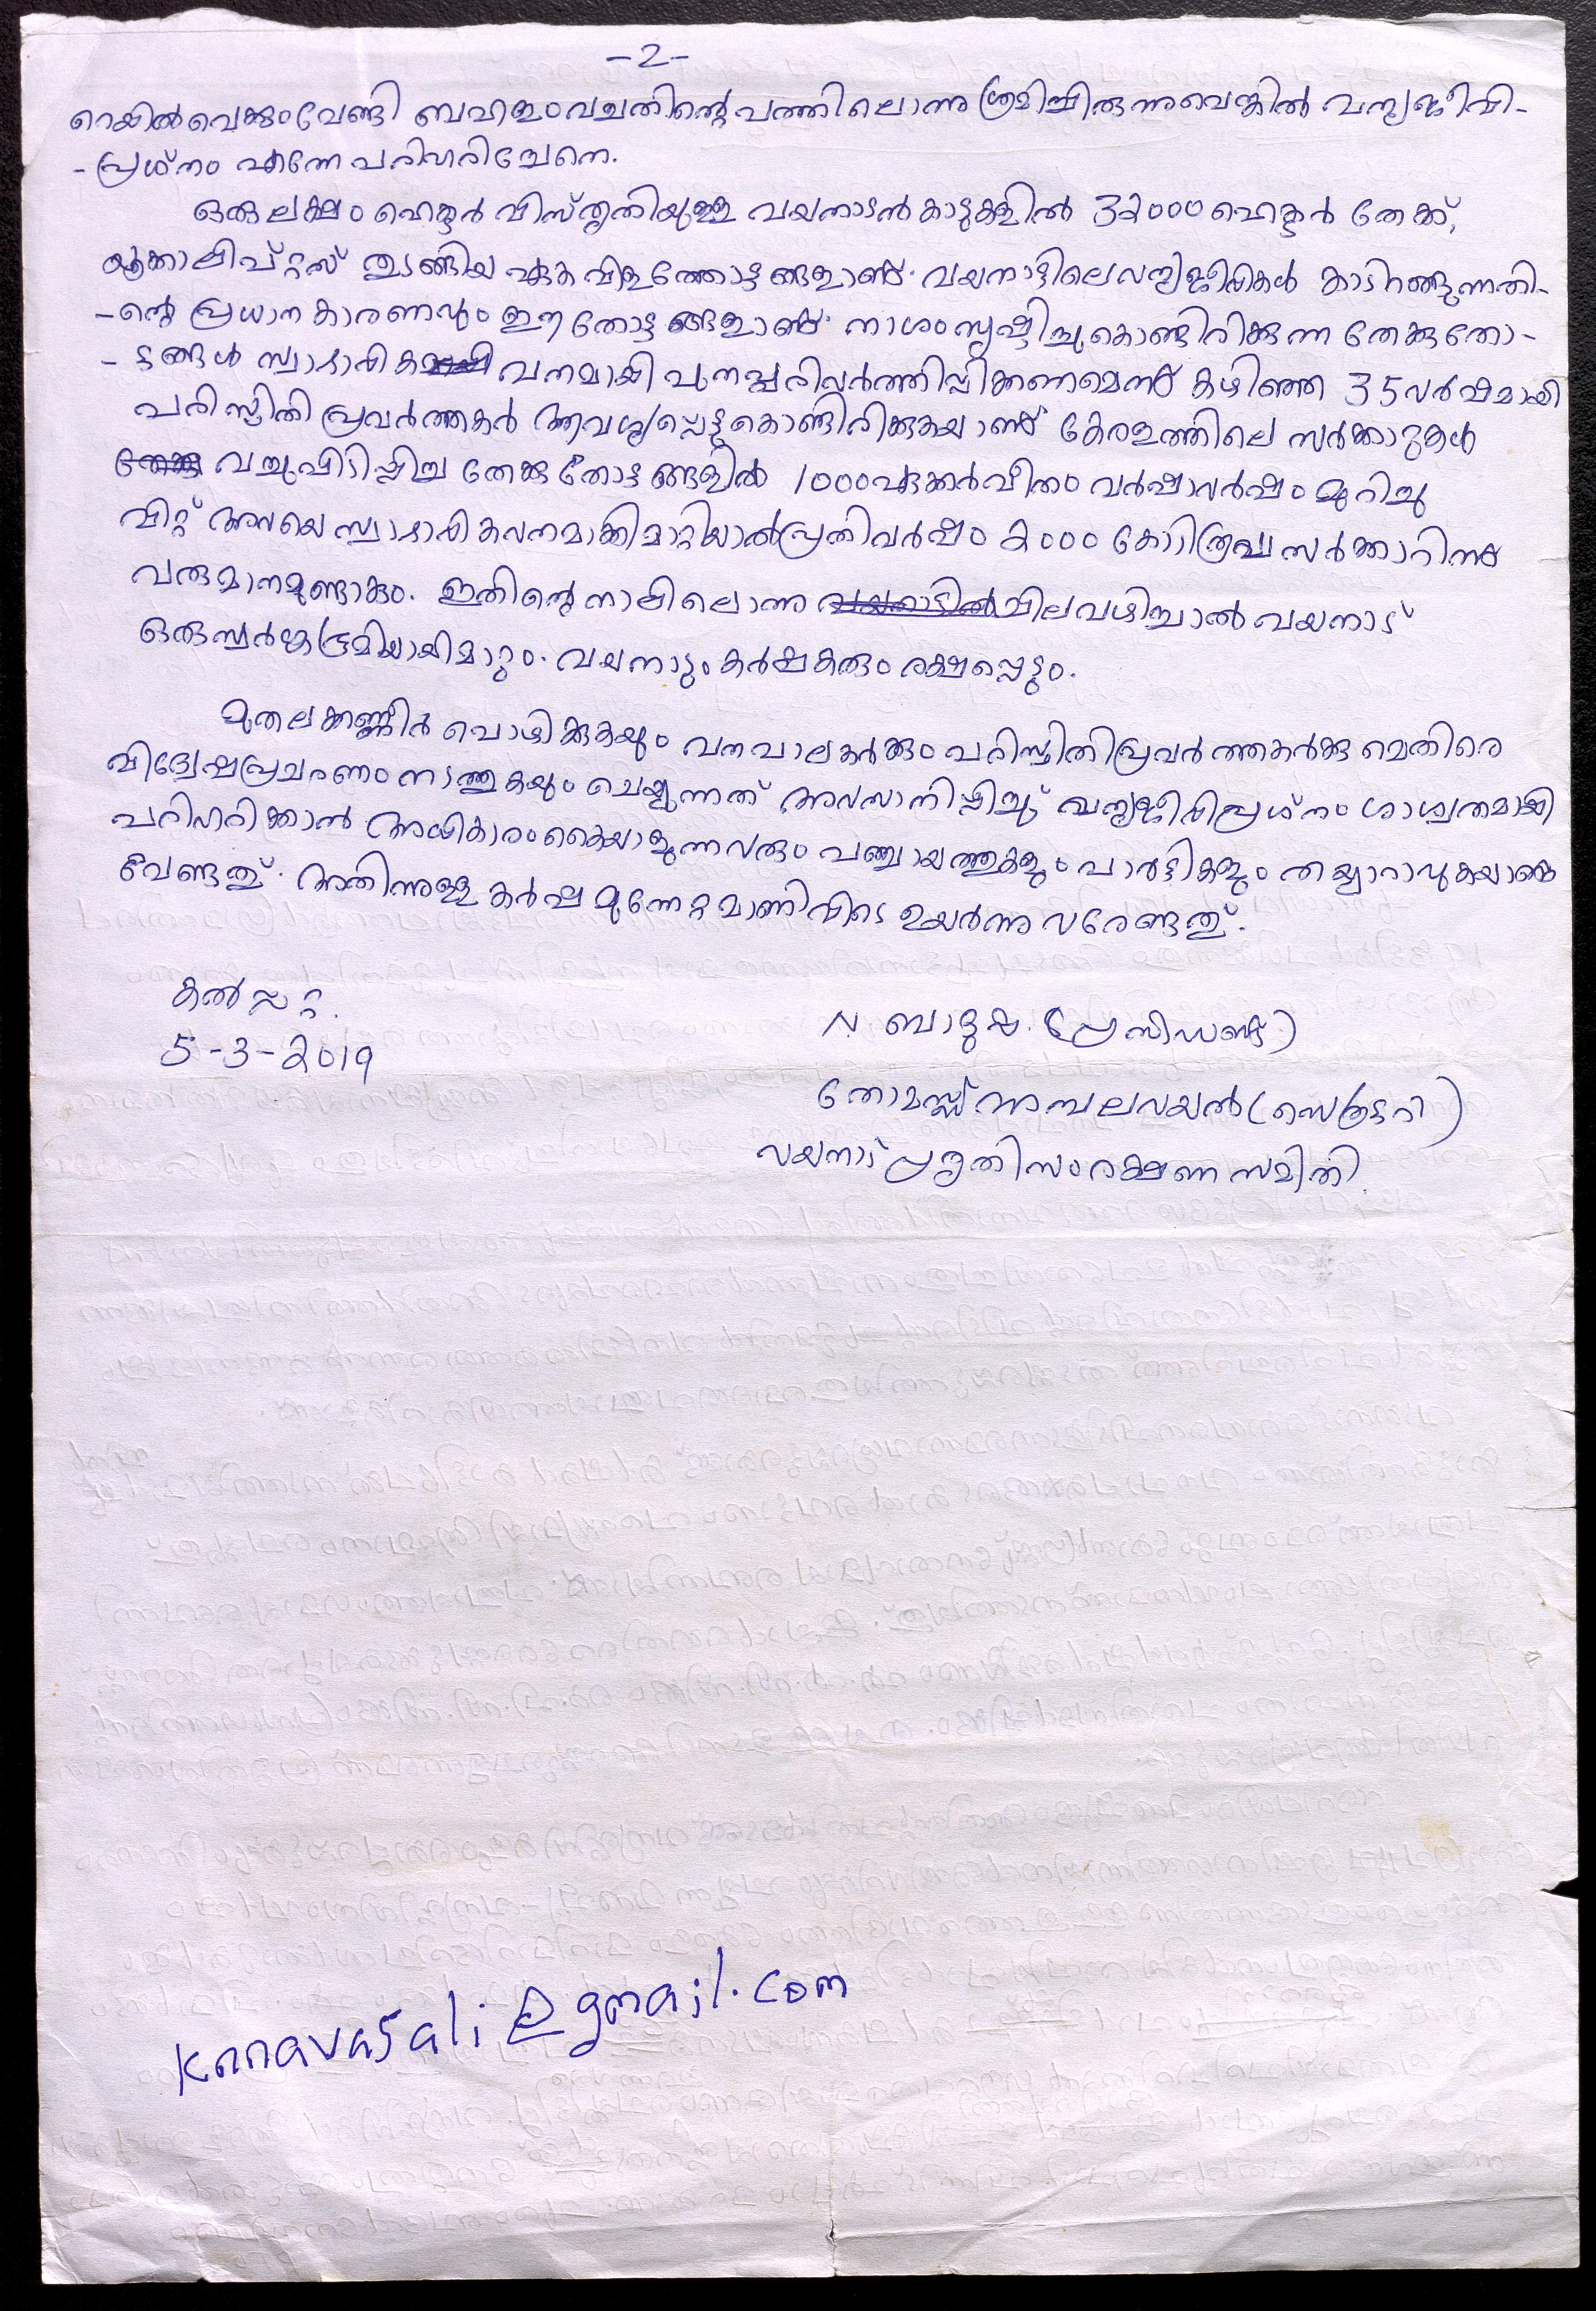 -2-
റെയിൽവെക്കുംവേണ്ടി ബഹളംവച്ചതിന്റെ പത്തിലൊന്നു ശ്രമിച്ചിരുന്നുവെങ്കിൽ വന്യജീവി-
-പ്രശ്നം എന്നേ പരിഹരിച്ചേനെ.
ഒരു ലക്ഷം ഹെക്ടർ വിസ്തൃതിയുള്ള വയനാടൻ കാടുകളിൽ 32000 ഹെക്ടർ തേക്ക്,
യൂക്കാലിപ്റ്റസ് തുടങ്ങിയ ഏകവിളത്തോട്ടങ്ങളാണ്. വയനാട്ടിലെ വന്യജീവികൾ കാടിറങ്ങുന്നതി-
-ന്റെ പ്രധാന കാരണവും ഈ തോട്ടങ്ങളാണ്. നാശം സൃഷ്ടിച്ചുകൊണ്ടിരിക്കുന്ന തേക്കുതോ-
-ട്ടങ്ങൾ സ്വാഭാവിക വനമായി പുനപ്പരിവർത്തിപ്പിക്കണമെന്ന് കഴിഞ്ഞ 35 വർഷമായി
പരിസ്ഥിതി പ്രവർത്തകർ ആവശ്യപ്പെട്ടുകൊണ്ടിരിക്കുകയാണ് കേരളത്തിലെ സർക്കാറുകൾ
വച്ചുപിടിപ്പിച്ച തേക്കു തോട്ടങ്ങളിൽ 1000 ഏക്കർവീതം വർഷാവർഷം മുറിച്ചു
വിറ്റ് അവയെ സ്വാഭാവികവനമാക്കിമാറ്റിയാൽ പ്രതിവർഷം 2000 കോടിരൂപ സർക്കാറിന്
വരുമാനമുണ്ടാകും. ഇതിന്റെ നാലിലൊന്നു ചിലവഴിച്ചാൽ വയനാട്
ഒരു സ്വർഗ്ഗഭൂമിയായിമാറും. വയനാടും കർഷകരും രക്ഷപ്പെടും.
മുതലക്കണ്ണീർ പൊഴിക്കുകയും വനപാലകർക്കും പരിസ്ഥിതിപ്രവർത്തകർക്കുമെതിരെ
വിദ്വേഷപ്രചരണം നടത്തുകയും ചെയ്യുന്നത് അവസാനിപ്പിച്ച് വന്യജീവിപ്രശ്നം ശാശ്വതമായി
പരിഹരിക്കാൻ അധികാരം കൈയാളുന്നവരും പഞ്ചായത്തുകളും പാർട്ടികളും തയ്യാറാവുകയാണ്
വേണ്ടത്. അതിന്നുള്ള കർഷ മുന്നേറ്റമാണിവിടെ ഉയർന്നു വരേണ്ടത്.
കൽപ്പറ്റ.
5-3-2019
N. ബാദുഷ. (പ്രസിഡണ്ട്)
തോമസ്സ് അമ്പലവയൽ (സെക്രട്ടറി)
വയനാട് പ്രകൃതി സംരക്ഷണ സമിതി.
knnavasali@gmail.com